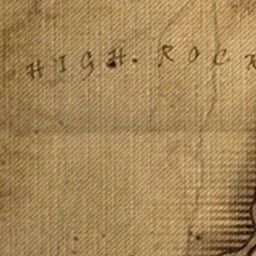 HIGH. ROCK